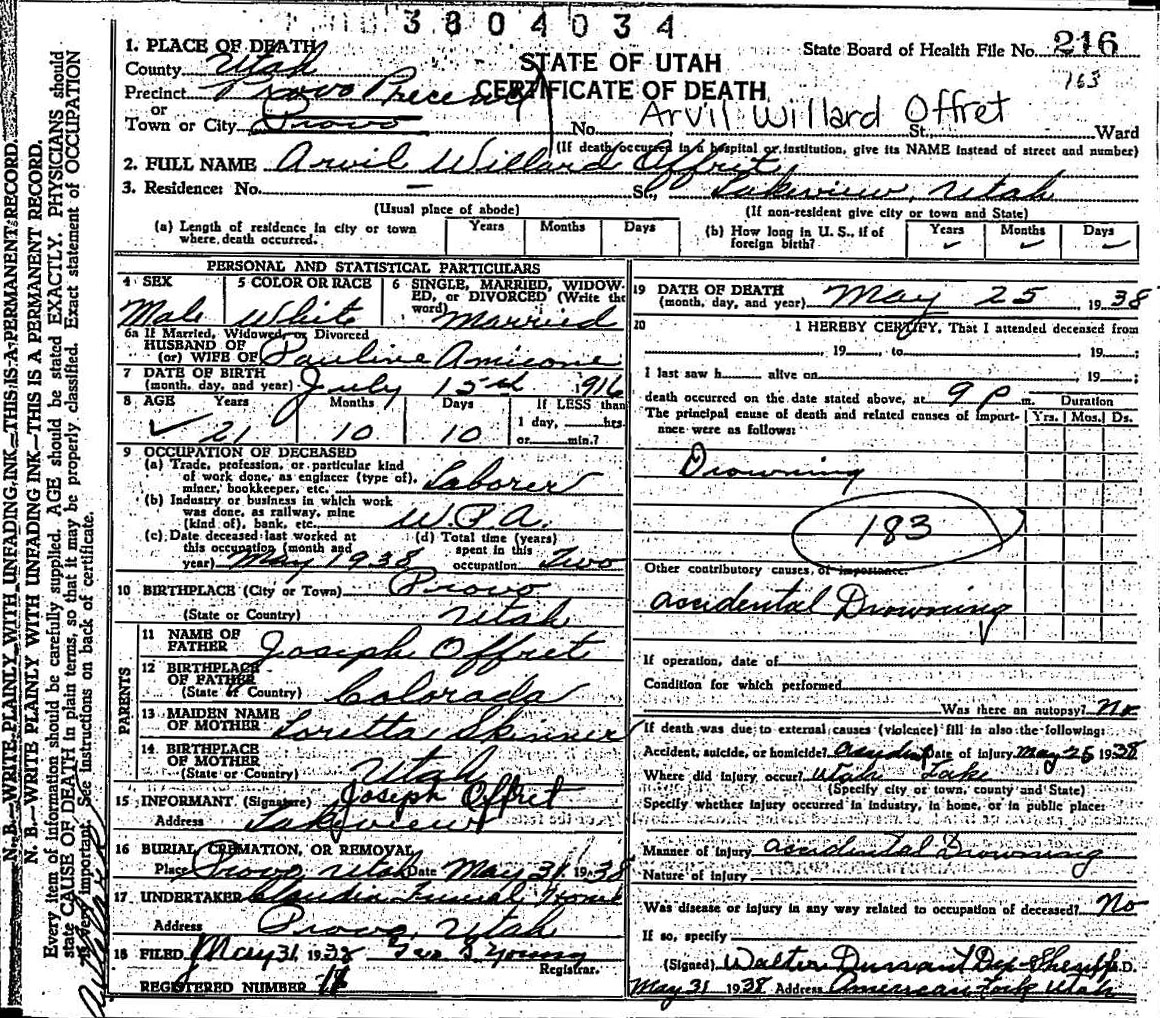 3804034
1. PLACE OF DEATH
STATE OF UTAH
CERTIFICATE OF DEATH
State Board of Health File No. 216
163
County Utah
Precinct Provo Precinct
or
Town or City Provo
No. Arvil Willard Offret St., Ward
(If death occurred in a hospital or institution, give its NAME instead of street and number)
2. FULL NAME Arvil Willard Offret
3. Residence: No. – St., Lakeview, Utah
(Usual place of abode) (If non-resident give city or town and State)
(a) Length of residence in city or town where death occurred. Years Months Days
(b) How long in U. S., if of foreign birth? Years Months Days
PERSONAL AND STATISTICAL PARTICULARS
4 SEX Male
5 COLOR OR RACE White
6 SINGLE, MARRIED, WIDOWED, or DIVORCED (Write the word) Married
6a If Married, Widowed, or Divorced
HUSBAND OF
(or) WIFE OF Pauline Amicone
7 DATE OF BIRTH
(month, day, and year) July 15 1916
8 AGE Years Months Days If LESS than
21 10 10 1 day, hrs.
or min.?
9 OCCUPATION OF DECEASED
(a) Trade, profession, or particular kind
of work done, as engineer (type of),
miner, bookkeeper, etc. Laborer
(b) Industry or business in which work
was done, as railway, mine
(kind of), bank, etc. W.P.A.
(c) Date deceased last worked at
this occupation (month and
year) May 1938
(d) Total time (years)
spent in this
occupation Two
10 BIRTHPLACE (City or Town) Provo
(State or Country) Utah
PARENTS
11 NAME OF
FATHER Joseph Offret
12 BIRTHPLACE
OF FATHER
(State or Country) Colorado
13 MAIDEN NAME
OF MOTHER Loretta Skinner
14 BIRTHPLACE
OF MOTHER
(State or Country) Utah
15 INFORMANT (Signature) Joseph Offret
Address Lakeview
16 BURIAL, CREMATION, OR REMOVAL
Place Provo Utah Date May 31, 1938
17 UNDERTAKER Claudin Funeral Home
Address Provo, Utah
18 FILED May 31 1938 Geo S. Young
Registrar.
REGISTERED NUMBER
19 DATE OF DEATH
(month, day, and year) May 25 1938
20 I HEREBY CERTIFY, That I attended deceased from
, 19 , to , 19 ;
I last saw h alive on , 19 ;
death occurred on the date stated above, at 9 P m.
The principal cause of death and related causes of importance were as follows:
Duration
Yrs. Mos. Ds.
Drowning
183
Other contributory causes, of importance:
accidental Drowning
If operation, date of
Condition for which performed
Was there an autopsy? No
If death was due to external causes (violence) fill in also the following:
Accident, suicide, or homicide? Date of injury May 25 1938
Where did injury occur? Utah Lake
(Specify city or town, county and State)
Specify whether injury occurred in industry, in home, or in public place:
Manner of injury accidental Drowning
Nature of injury
Was disease or injury in any way related to occupation of deceased? No
If so, specify
(Signed) Walter Durrant Dep. Sheriff M.D.
May 31 1938 Address American Fork Utah
N. B.—WRITE PLAINLY WITH UNFADING INK—THIS IS A PERMANENT RECORD.
N. B.—WRITE PLAINLY WITH UNFADING INK—THIS IS A PERMANENT RECORD.
Every item of information should be carefully supplied. AGE should be stated EXACTLY. PHYSICIANS should
state CAUSE OF DEATH in plain terms, so that it may be properly classified. Exact statement of OCCUPATION
is very important. See instructions on back of certificate.